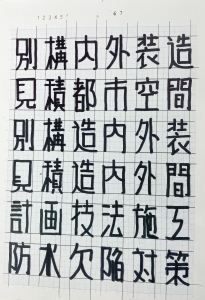 1 2 3 4 5 6 7
別構内外装造
見積都市空間
別構造内外装
見積造内外間
計画技法施工
防水欠陥対策